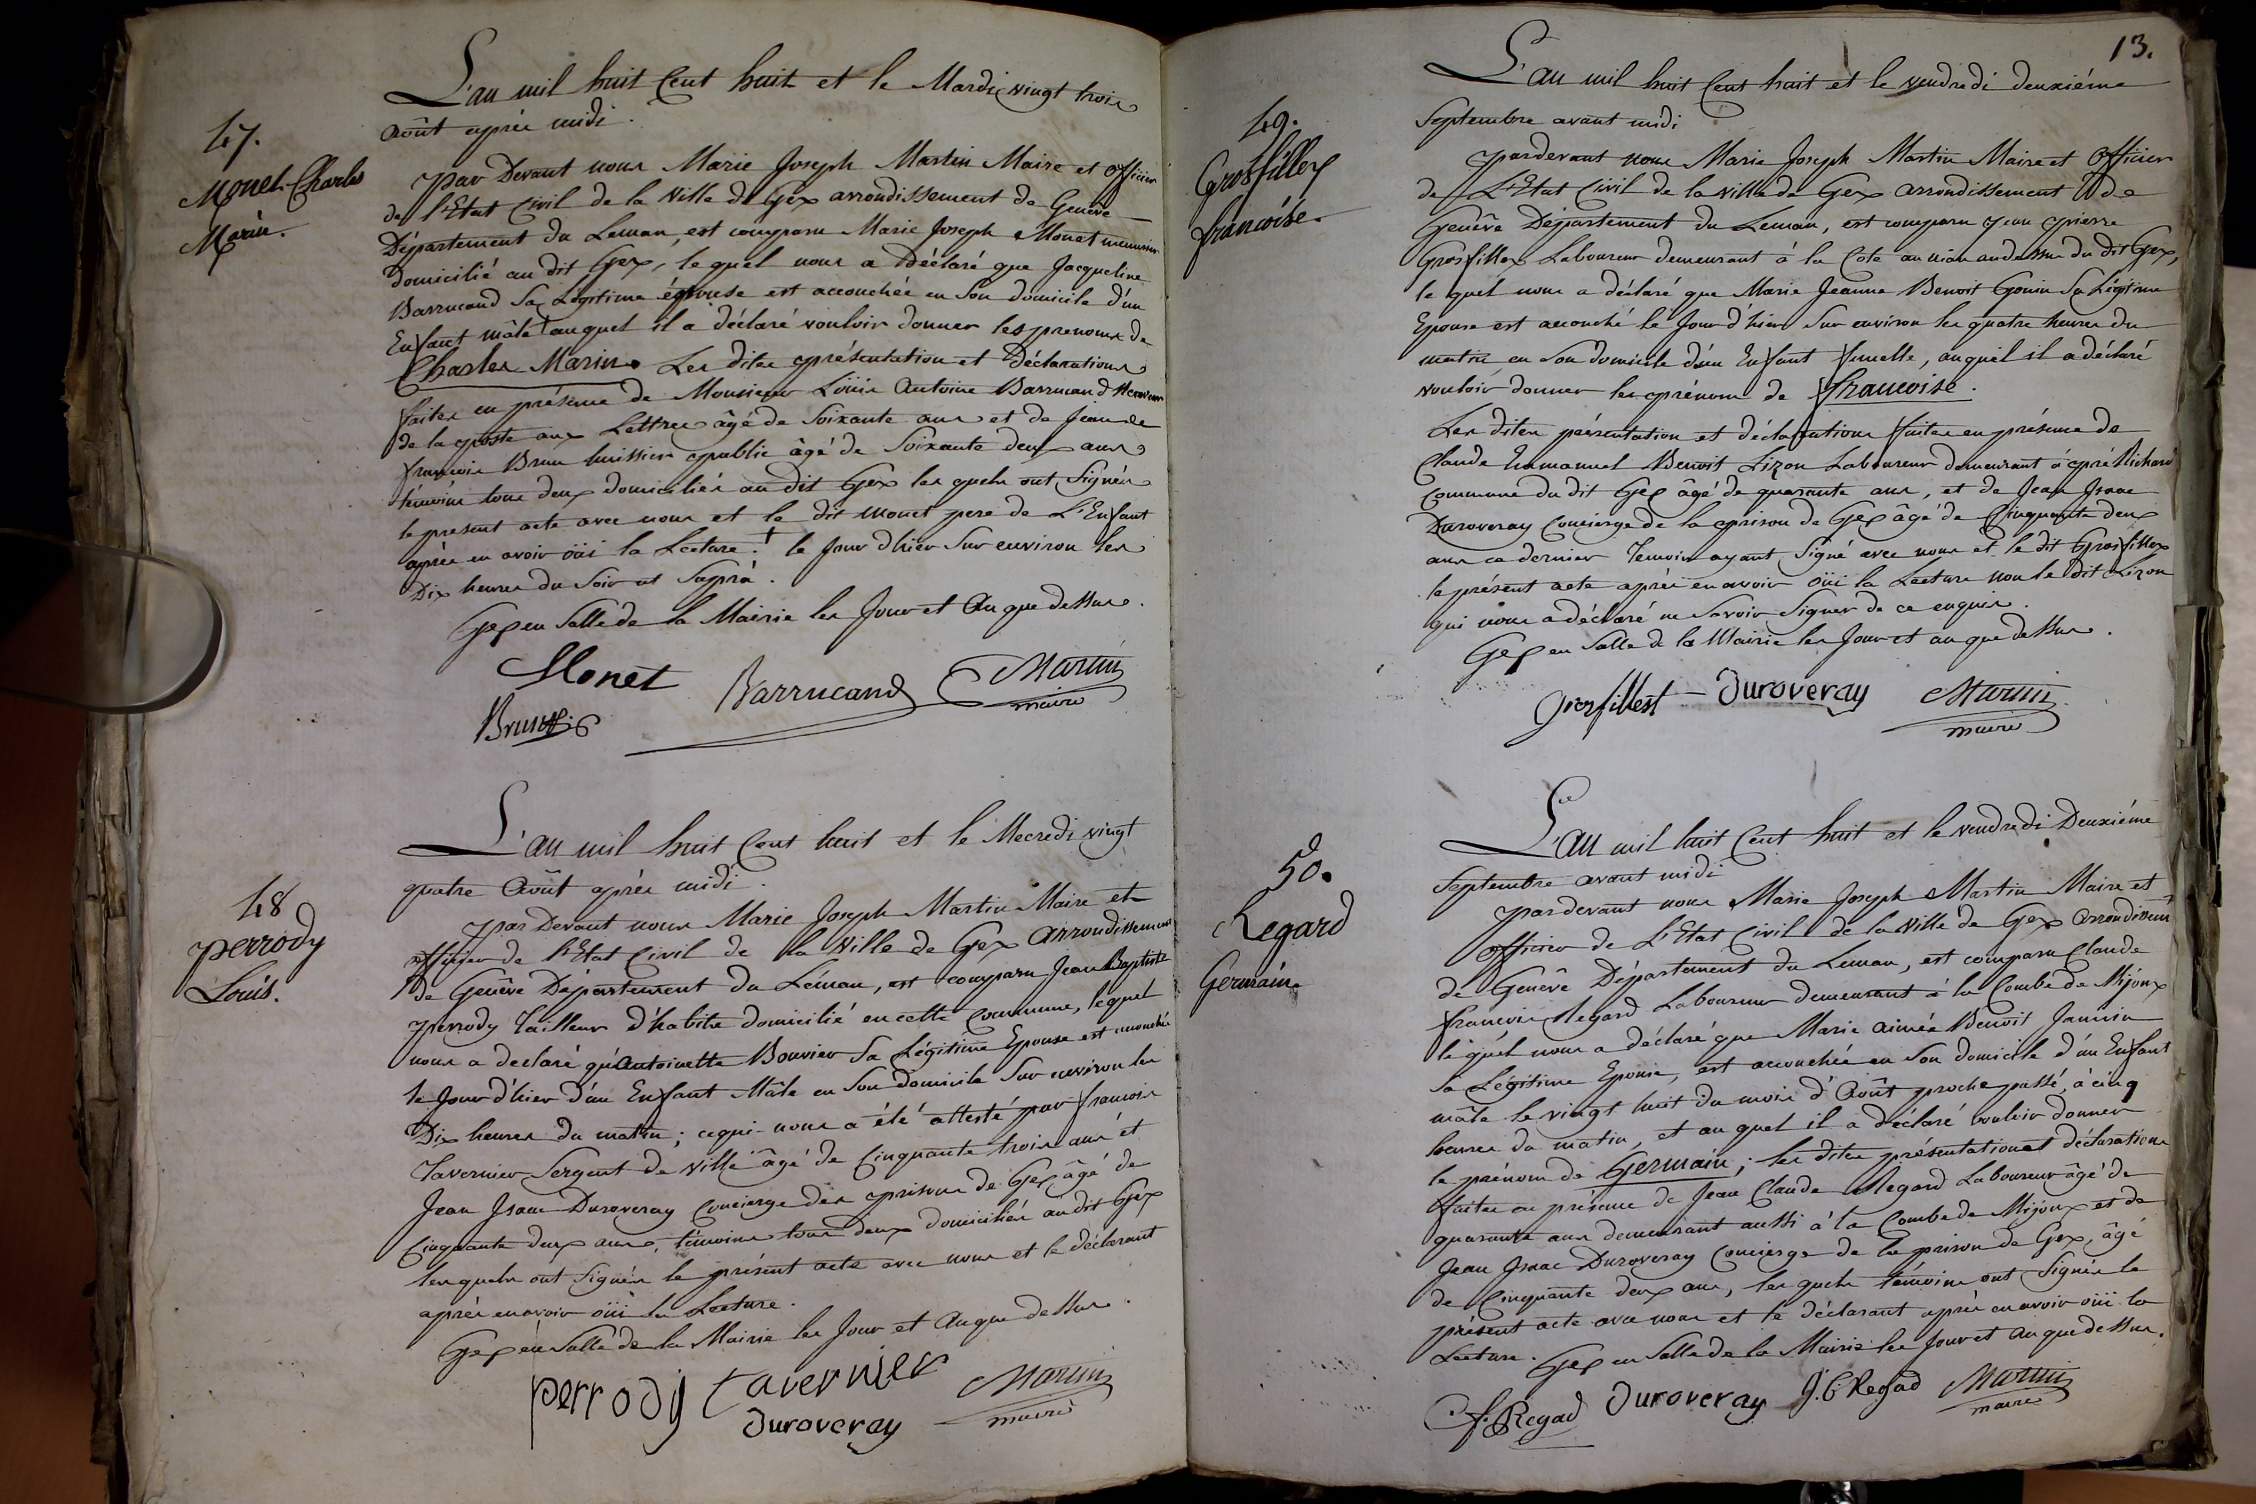 L'an mil huit Cent huit et le Mardi vingt trois
Août après midi.
47.
Monet Charles
Marin.
par Devant nous Marie Joseph Martin Maire et officier
de l'Etat Civil de la Ville de Gex arrondissement de Genève
Département du Leman, est comparu Marie Joseph Monet menuisier
domicilié au dit Gex, le quel nous a déclaré que Jacqueline
Barrucand Sa Légitime épouse est accouchée en Son domicile d'un
Enfant mâle † auquel il a déclaré vouloir donner les prenoms de
Charles Marin. Les dites présentation et Déclarations
faites en présence de Monsieur Loüis Antoine Barrucand Directeur
de la poste aux Lettres âgé de Soixante ans et de Jean de
françois Brun huissier public âgé de Soixante deux ans
témoins tous deux domiciliés au dit Gex les quels ont Signés
le present acte avec nous et le dit Monet pere de L'Enfant
après en avoir oüi la Lecture. † le Jour d'hier Sur environ les
Dix heures du Soir ut Suprà.
Gex en Salle de la Mairie les Jour et An que dessus.
Monet Barrucand Martin
maire
Brun
L'an mil huit Cent huit et le Mecredi vingt
quatre Août après midi.
48
perrody
Loüis.
par Devant nous Marie Joseph Martin Maire et
officier de l'Etat Civil de la Ville de Gex Arrondissement
de Genêve Département du Léman, est comparu Jean Baptiste
perrody Tailleur d'habits domicilié en cette Commune, lequel
nous a declaré qu'Antoinette Bouvier Sa Légitime Epouse est accouchée
le Jour d'hier d'un Enfant Mâle en Son domicile Sur environ les
Dix heures du matin; ce qui nous a été attesté par françois
Tavernier Sergent de ville âgé de Cinquante trois ans et
Jean Isaac Duroveray Concierge des prisons de Gex âgé de
Cinquante deux ans, témoins tous deux domiciliés au dit Gex
les quels ont Signés le présent acte avec nous et le déclarant
après en avoir oüi la Lecture.
Gex en Salle de la Mairie les Jour et An que dessus.
perrody tavernier Martin
maire
Duroveray
13.
L'an mil huit Cent huit et le vendredi deuxiéme
Septembre avant midi
49.
Grosfilley
françoise.
pardevant nous Marie Joseph Martin Maire et Officier
de L'Etat Civil de la ville de Gex arrondissement de
Genêve Département du Leman, est comparu Jean pierre
Grosfillex Laboureur demeurant à la Cote au nian au dessus du dit Gex,
le quel nous a déclaré que Marie Jeanne Benoit Gonin Sa Légitime
Epouse est accouché le Jour d'hier Sur environ les quatre heures du
matin en Son domicile d'un Enfant femelle, auquel il a déclaré
vouloir donner les prénom de françoise.
Les dites présentation et déclarations faites en présence de
Claude Emmanuel Benoit Lizon Laboureur demeurant à pré Richard
Commune du dit Gex âgé de quarante ans, et de Jean Isaac
Duroveray Concierge de la prison de Gex âgé de Cinquante deux
ans ce dernier Temoin ayant Signé avec nous et le dit Grosfillex
le présent acte après en avoir oüi la Lecture non le dit Lizon
qui nous a déclaré ne Savoir Signer de ce enquis.
Gex en Salle de la Mairie les Jour et an que dessus.
Grosfillest Duroveray Martin
maire
L'an mil huit Cent huit et le vendredi Deuxiéme
Septembre avant midi
50.
Regard
Germain.
pardevant nous Marie Joseph Martin Maire et
officier de L'Etat Civil de la Ville de Gex Arrondissemt
de Genêve Département du Leman, est comparu Claude
françois Regard Laboureur demeurant à la Combe de Mijoux
le quel nous a déclaré que Marie aimée Benoit Jannin
Sa Légitime Epouse, est accouchée en Son domicile d'un Enfant
mâle le vingt huit du mois d'Août proche passé, à cinq
heures du matin, et au quel il a déclaré vouloir donner
le prénom de Germain; les dites présentation et déclaration
faites en présence de Jean Claude Regard Laboureur âgé de
quarante ans demeurant aussi à la Combe de Mijoux et de
Jean Isaac Duroveray Concierge de la prison de Gex, âgé
de Cinquante deux ans, les quels témoins ont Signés le
présent acte avec nous et le déclarant après en avoir oüi la
Lecture. Gex en Salle de la Mairie les Jour et An que dessus.
C. f. Regad Duroveray J. C Regad Martin
maire